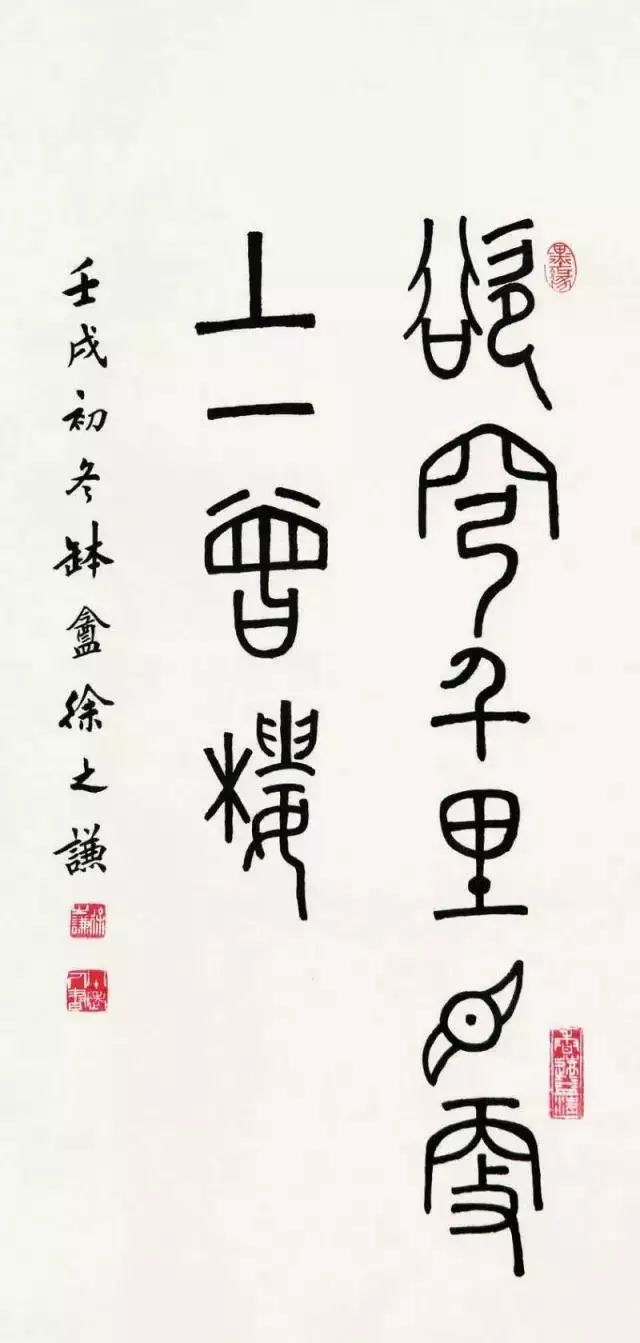 墨緣
欲穹千里目更
上一曾樓
壬戌初冬缽盦徐之謙